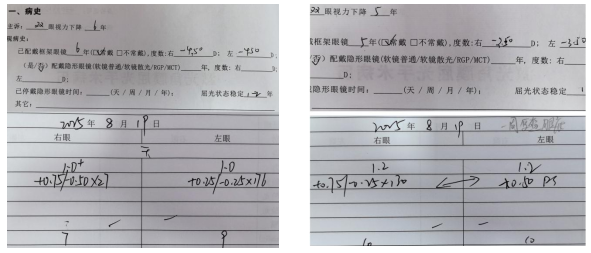 一、病史
主诉: 双 眼视力下降 6 年
现病史:
已配戴框架眼镜 6 年(☑常戴 □不常戴),度数:右 -4.50 D; 左 -4.50
(是/否)配戴隐形眼镜(软镜普通/软镜散光/RGP/MCT) 年, 度数: 右 D;
左 D;
已停戴隐形眼镜时间: (天 / 周 / 月 / 年); 屈光状态稳定 年
其它:
2025 年 8 月 19 日
右眼 左眼
1.0+ 1.0
+0.75/-0.50×27 +0.25/-0.25×176
7 9
双 眼视力下降 5 年
戴框架眼镜 5 年(☑常戴 □不常戴),度数:右 -2.50 D; 左 -3.50
否)配戴隐形眼镜(软镜普通/软镜散光/RGP/MCT) 年, 度数: 右
D;
隐形眼镜时间: (天 / 周 / 月 / 年); 屈光状态稳定 1
2025 年 8 月 19 日
右眼 左眼
1.2 1.2
+0.75/-0.25×130 +0.50 DS
10 10